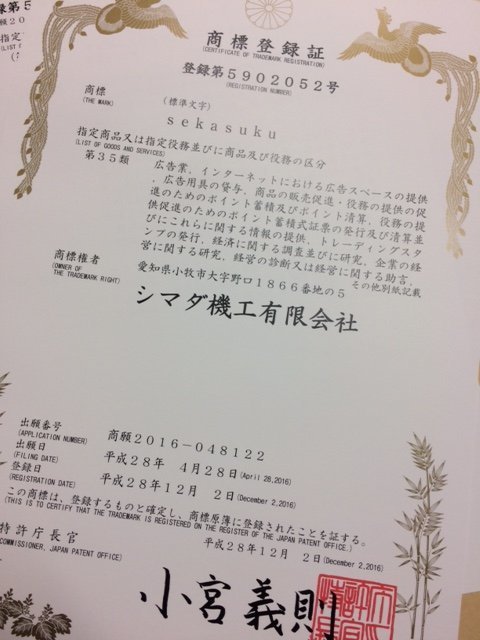 商標登録証
(CERTIFICATE OF TRADEMARK REGISTRATION)
登録第5902052号
(REGISTRATION NUMBER)
商標
(THE MARK)
(標準文字)
sekasuku
指定商品又は指定役務並びに商品及び役務の区分
(LIST OF GOODS AND SERVICES)
第35類
広告業，インターネットにおける広告スペースの提供
，広告用具の貸与，商品の販売促進・役務の提供の促
進のためのポイント蓄積及びポイント清算，役務の提
供促進のためのポイント蓄積式証票の発行及び清算並
びにこれらに関する情報の提供，トレーディングスタ
ンプの発行，経済に関する調査並びに研究，企業の経
営に関する研究，経営の診断又は経営に関する助言，
その他別紙記載
商標権者
(OWNER OF
THE TRADEMARK RIGHT)
愛知県小牧市大字野口1866番地の5
シマダ機工有限会社
出願番号
(APPLICATION NUMBER)
商願2016-048122
出願日
(FILING DATE)
平成28年 4月28日(April 28,2016)
登録日
(REGISTRATION DATE)
平成28年12月 2日(December 2,2016)
この商標は、登録するものと確定し、商標原簿に登録されたことを証する。
(THIS IS TO CERTIFY THAT THE TRADEMARK IS REGISTERED ON THE REGISTER OF THE JAPAN PATENT OFFICE.)
平成28年12月 2日(December 2,2016)
特許庁長官
COMMISSIONER, JAPAN PATENT OFFICE)
小宮義則